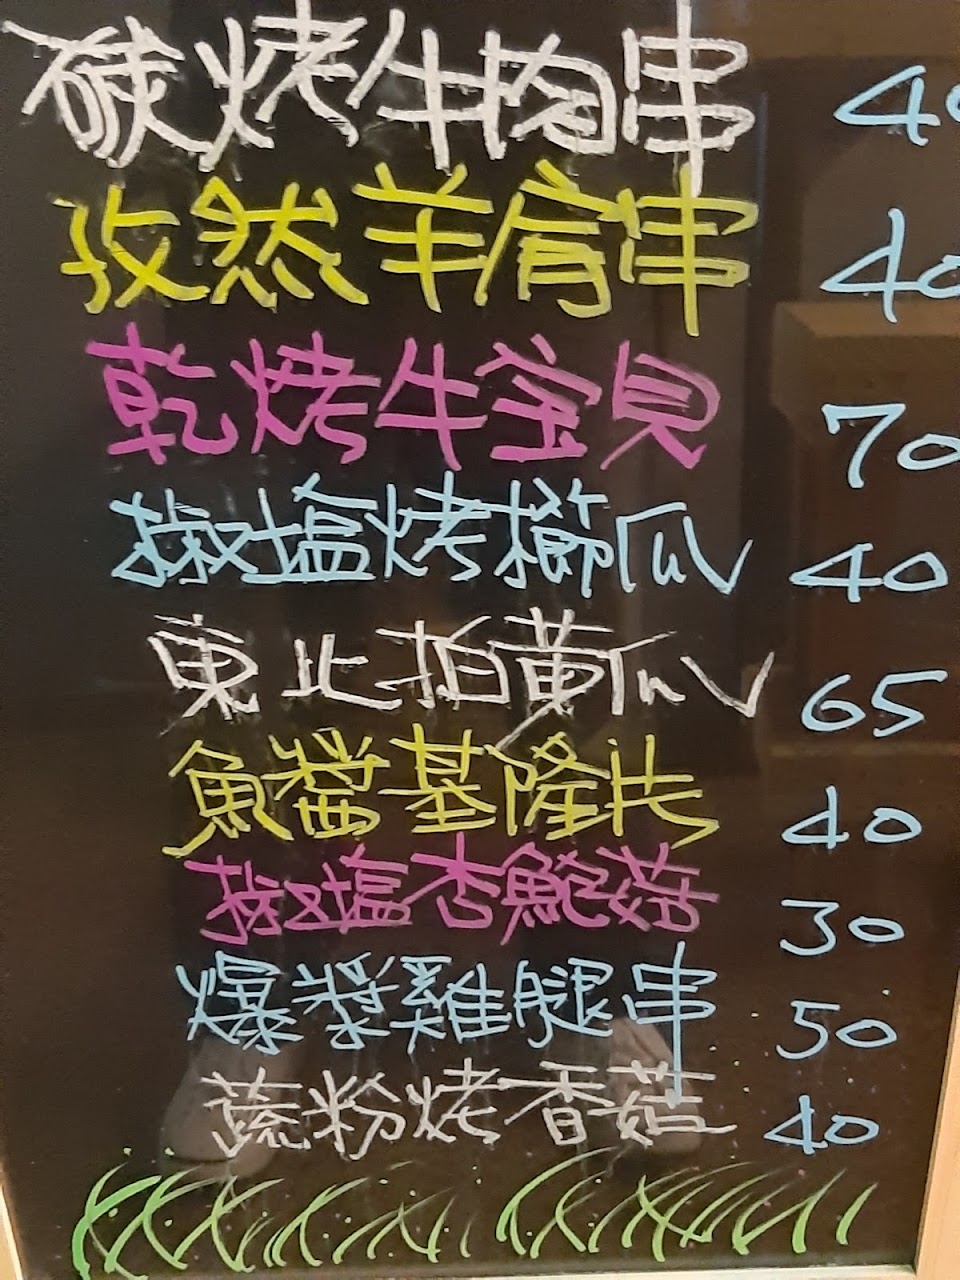 碳烤牛肉串 40
孜然羊肩串 40
乾烤牛宝貝 70
椒塩烤櫛瓜 40
東北拍黄瓜 65
魚醬基隆片 40
椒塩杏鮑菇 30
爆漿雞腿串 50
蔬粉烤香菇 40